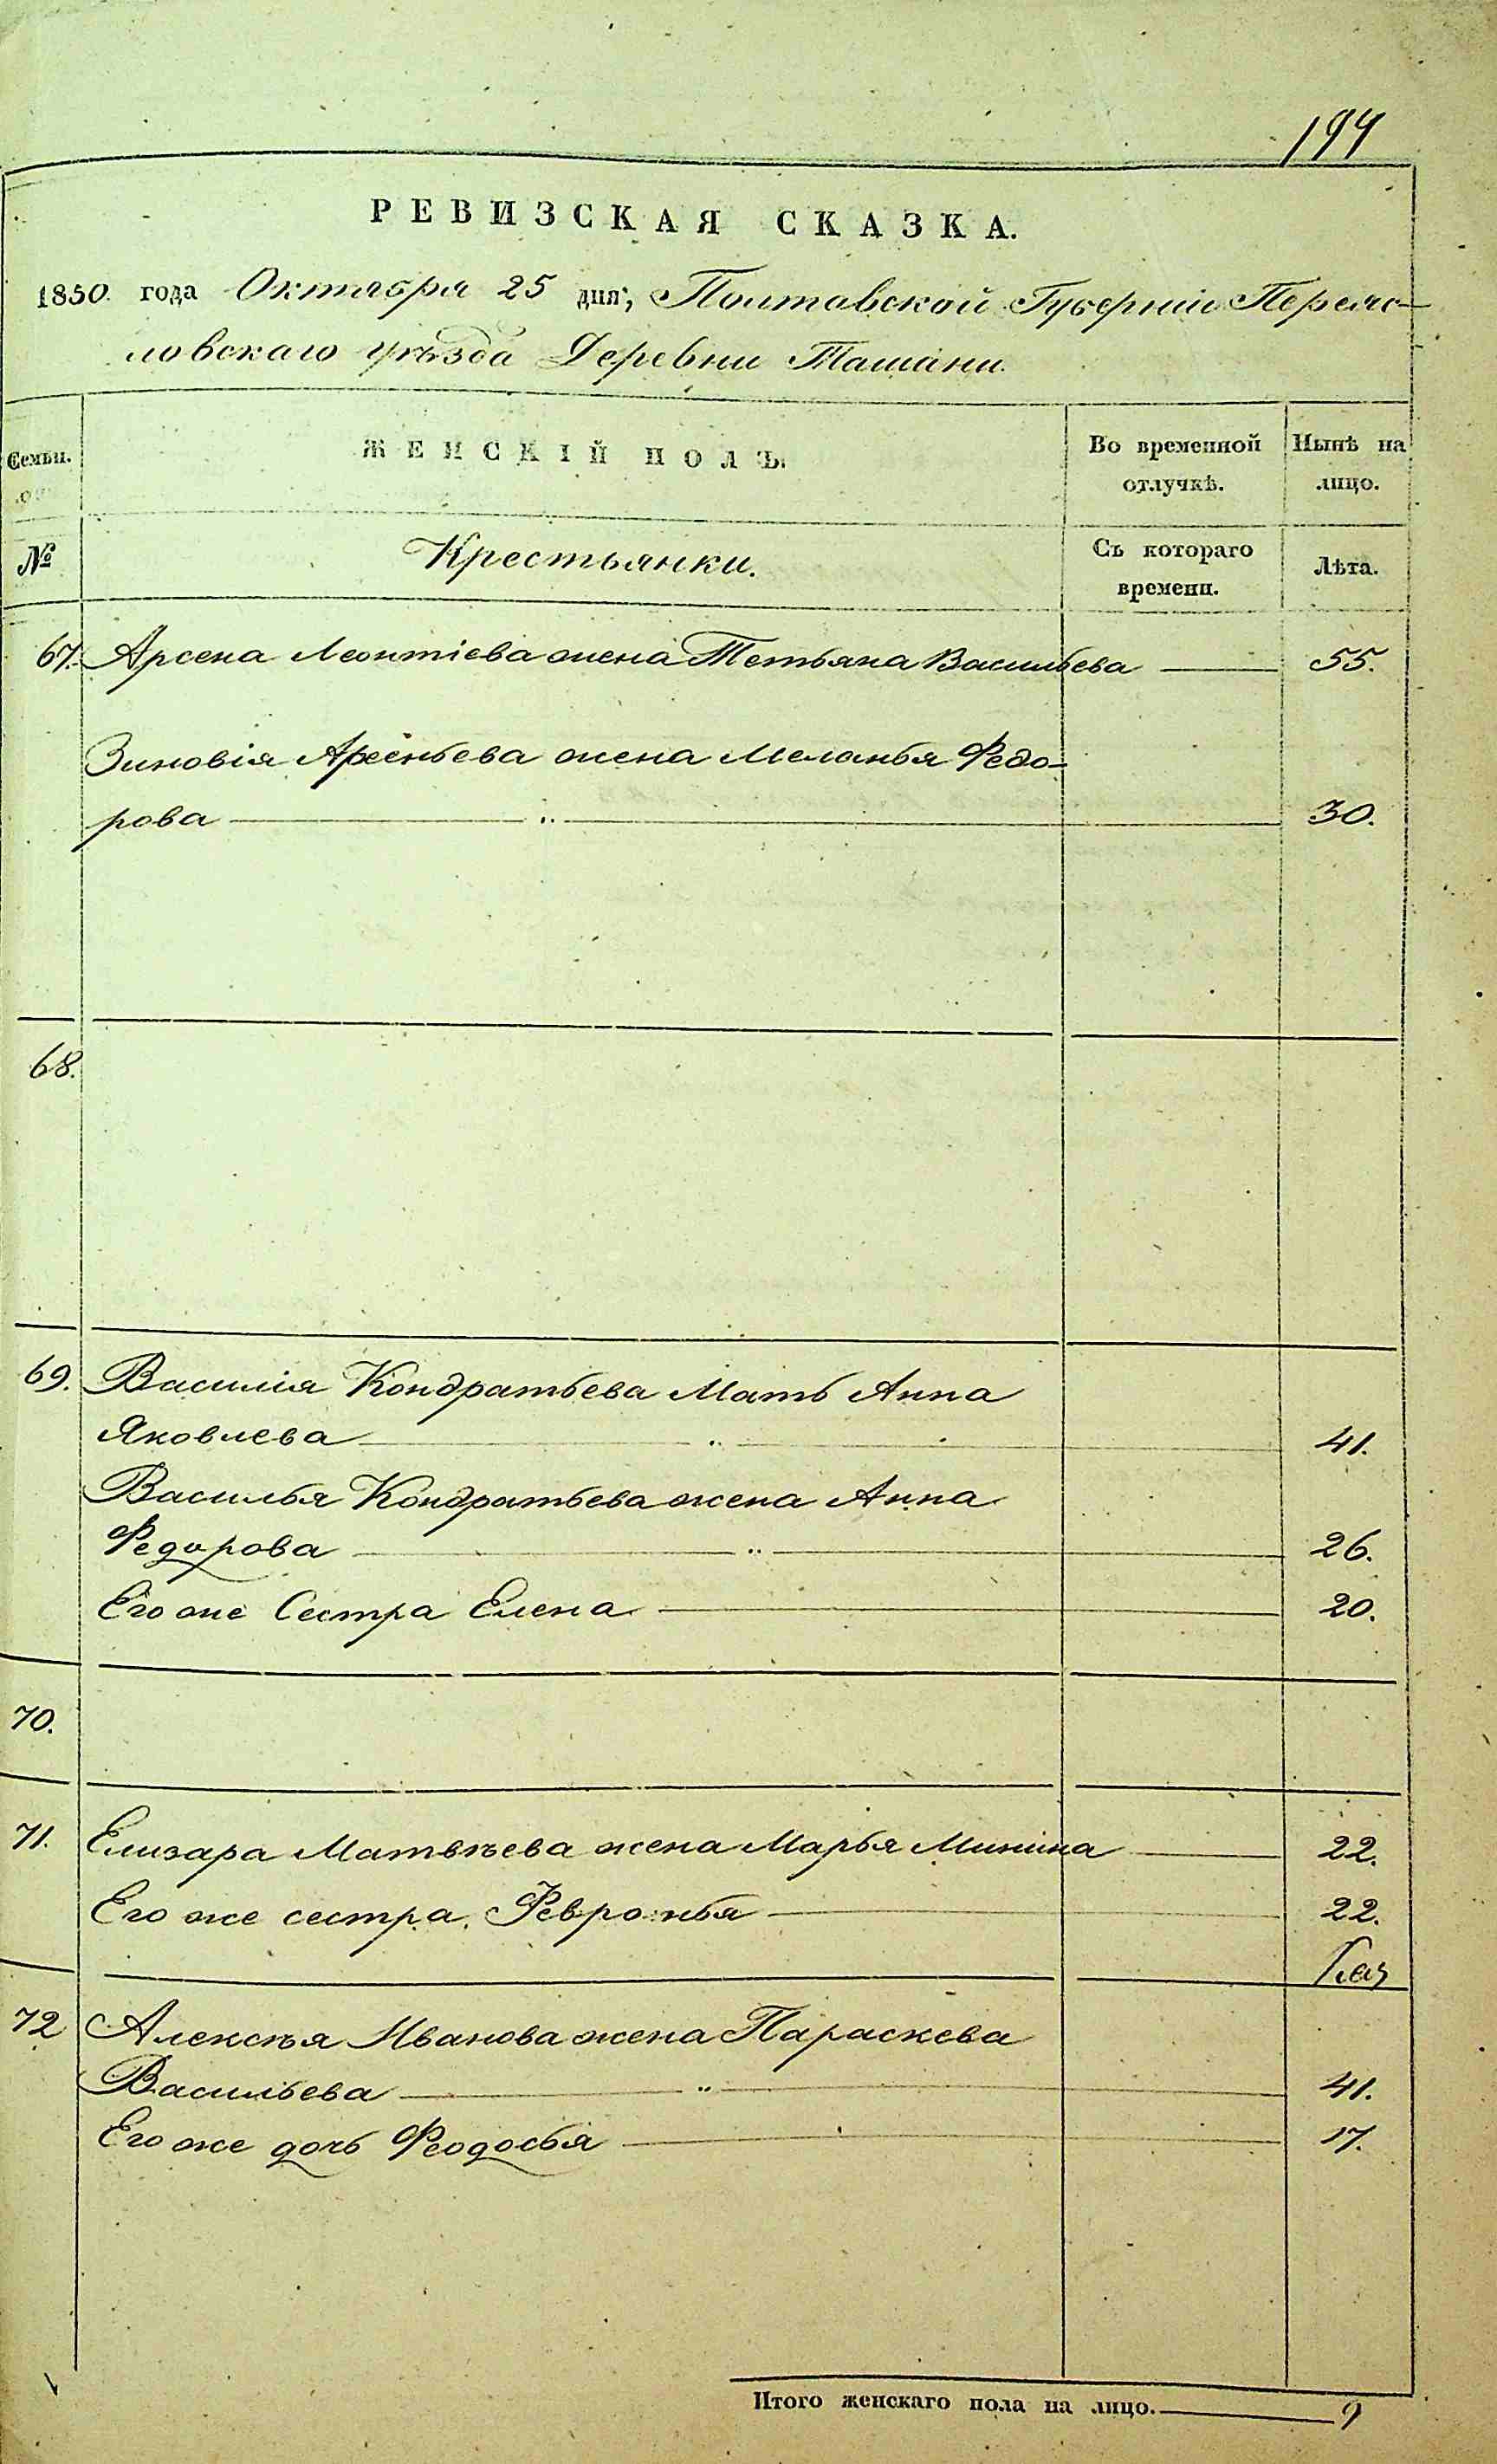 194
РЕВИЗСКАЯ СКАЗКА.
1850. года Октября 25 дня, Полтавской Губерніи Переяс-
ловскаго уѣзда Деревни Ташани.
Семьи. ЖЕНСКІЙ ПОЛЪ. Во временной отлучкѣ. Нынѣ на лицо.
№ Крестьянки. Съ котораго времени. Лѣта.
67. Арсена Леонтіева жена Тетьяна Васильева 55.
Зиновія Арсеньева жена Меланья Федо-
рова 30.
68.
69. Василія Кондратьева Мать Анна
Яковлева 41.
Василья Кондратьева жена Анна
Федорова 26.
Его же Сестра Елена 20.
70.
71. Елизара Матвѣева жена Марья Минина 22.
Его же сестра Февронья 22.
72 Алексѣя Иванова жена Параскева
Васильева 41.
Его же дочь Феодосья 17.
Итого женскаго пола на лицо. 9